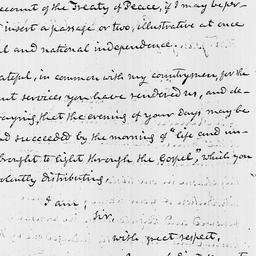 account of the Treaty of Peace, if I may be per-
insert a passage or two, illustrative at once
l and national independence.
ateful, in common with my countrymen, for the
nt services you have rendered us, and de-
raying, that the evening of your days may be
nd succeeded by the morning of "life and im-
brought to light through the Gospel," which you
olently distributing,
I am,
Sir,
with great respect,